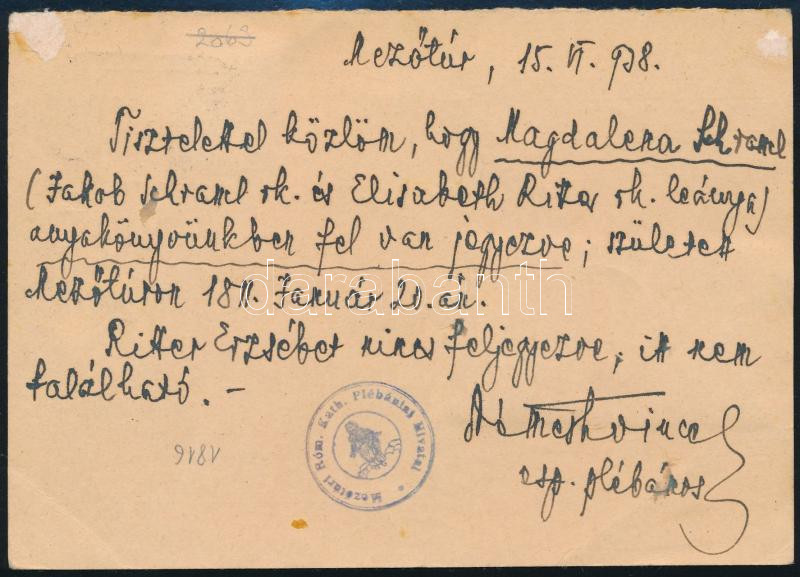 2063
Mezőtúr, 15. VI. 938.
Tisztelettel közlöm, hogy Magdalena Schraml
(Jakob Schraml rk. és Elisabeth Ritter rk. leánya)
anyakönyvünkben fel van jegyezve; született
Mezőtúron 1811. Január 20.án.
Ritter Erzsébet nincs feljegyezve, itt nem
található. –
esp. plébános
Mezőtúri Róm. Kath. Plébániai Hivatal
1816
darabanth